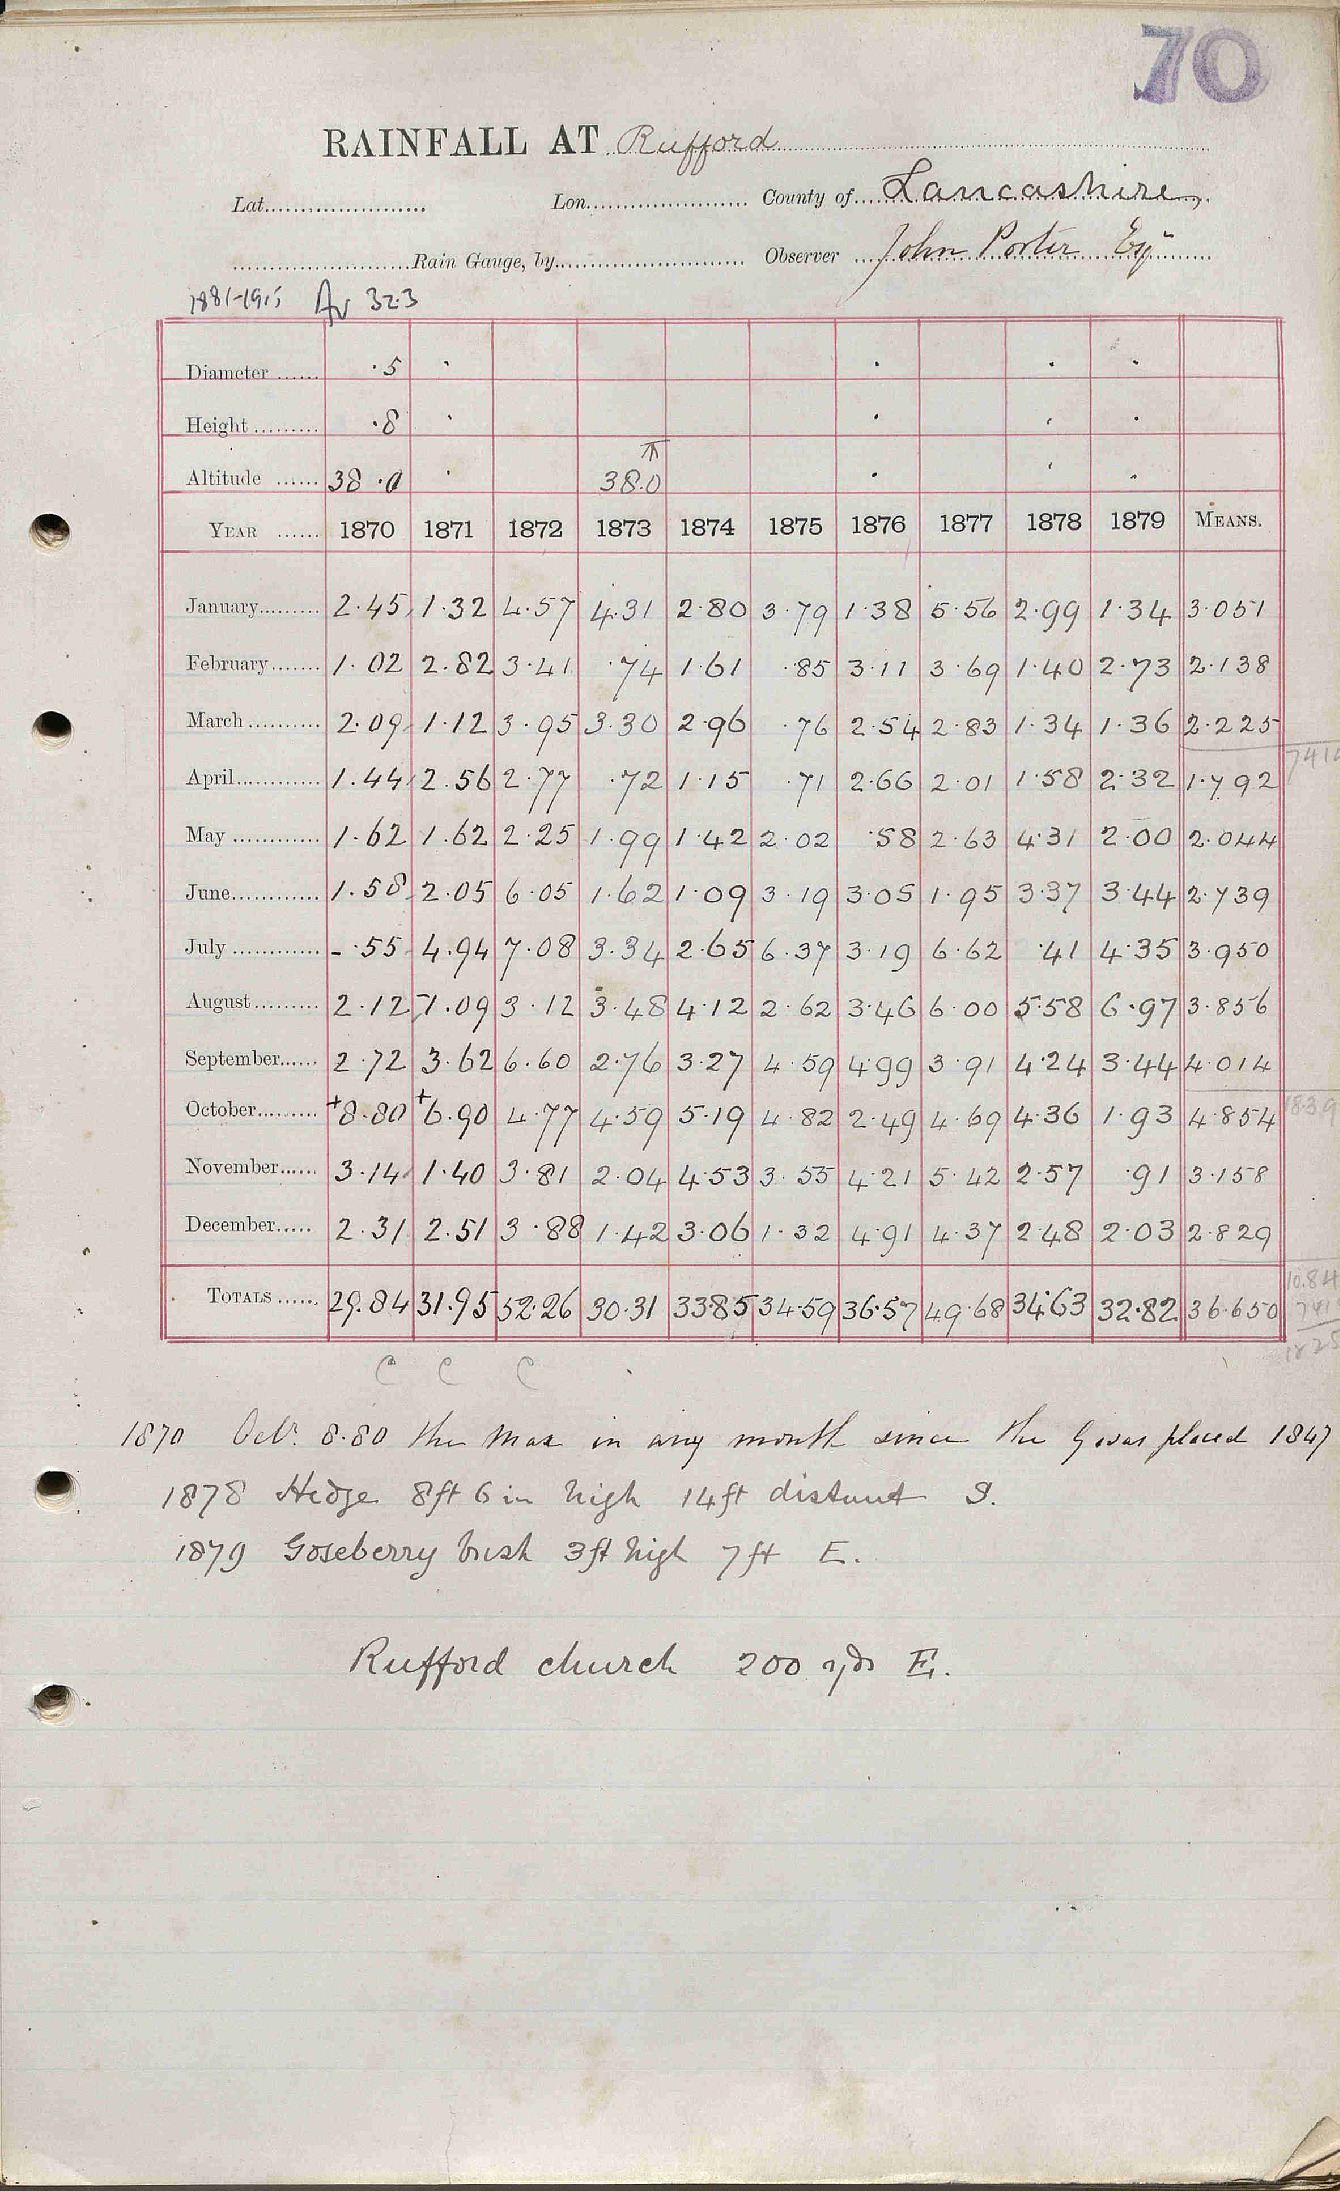 70
RAINFALL AT Rufford
Lat. Lon. County of Lancashire,
Rain Gauge, by Observer John Porter Esqr
1881-1915 Av 32.3
Diameter ·5
Height ·8
Altitude 38·0 38.0
YEAR 1870 1871 1872 1873 1874 1875 1876 1877 1878 1879 MEANS.
January 2·45 1·32 4·57 4·31 2·80 3·79 1·38 5·56 2·99 1·34 3·051
February 1·02 2·82 3·41 ·74 1·61 ·85 3·11 3·69 1·40 2·73 2·138
March 2·09 1·12 3·95 3·30 2·96 ·76 2·54 2·83 1·34 1·36 2·225
April 1·44 2·56 2·77 ·72 1·15 ·71 2·66 2·01 1·58 2·32 1·792
May 1·62 1·62 2·25 1·99 1·42 2·02 ·58 2·63 4·31 2·00 2·044
June 1·58 2·05 6·05 1·62 1·09 3·19 3·05 1·95 3·37 3·44 2·739
July - ·55 4·94 7·08 3·34 2·65 6·37 3·19 6·62 ·41 4·35 3·950
August 2·12 1·09 3·12 3·48 4·12 2·62 3·46 6·00 5·58 6·97 3·856
September 2·72 3·62 6·60 2·76 3·27 4·59 4·99 3·91 4·24 3·44 4·014
October +8·80 +6·90 4·77 4·59 5·19 4·82 2·49 4·69 4·36 1·93 4·854
November 3·14 1·40 3·81 2·04 4·53 3·55 4·21 5·42 2·57 ·91 3·158
December 2·31 2·51 3·88 1·42 3·06 1·32 4·91 4·37 2·48 2·03 2·829
TOTALS 29.84 31.95 52·26 30·31 33·85 34·59 36·57 49·68 34·63 32·82 36·650
C C C
1870 Oct. 8·80 the Max in any month since the G was placed 1847
1878 Hedge 8ft 6 in high 14ft distant S.
1879 Goseberry bush 3ft high 7ft E.
Rufford church 200 yds E.